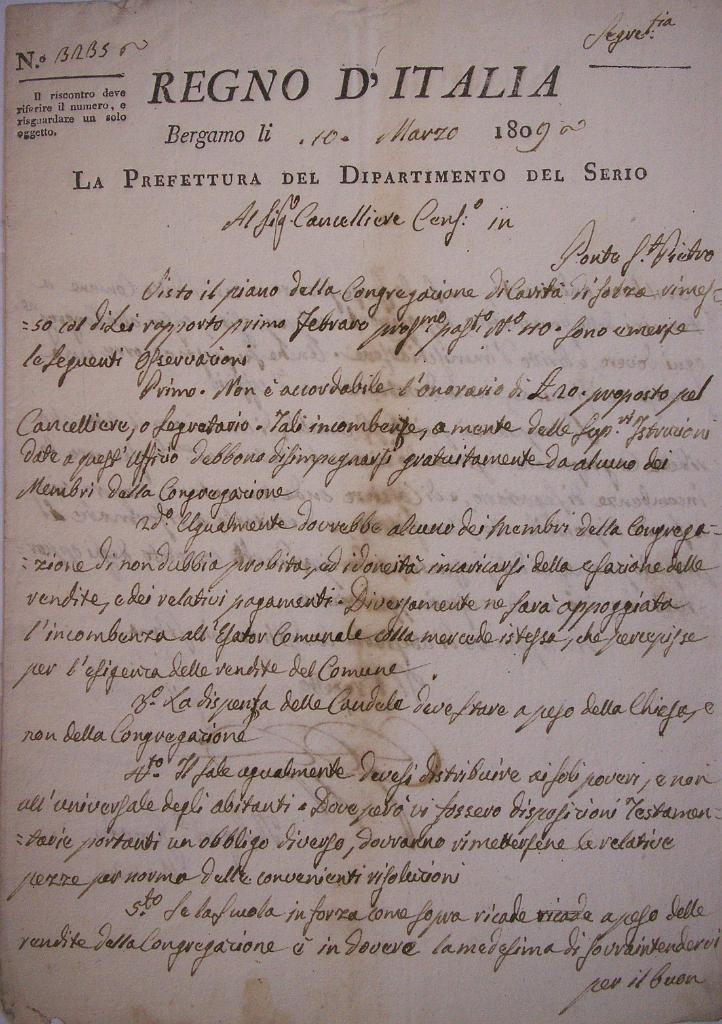 N.º 3285
Segre:tia
Il riscontro deve
riferire il numero, e
risguardare un solo
oggetto.
REGNO D'ITALIA
Bergamo li 10. Marzo 1809
LA PREFETTURA DEL DIPARTIMENTO DEL SERIO
Al Sigº Cancelliere Cens:º in
Ponte S.t Pietro
Visto il piano della Congregazione di Carità di Sforza rimes=
=so col di Lei rapporto primo Febraro prossmo pasto Nº 110. sono emerse
le seguenti osservazioni
Primo. Non è accordabile l'onorario di £20. proposto pel
Cancelliere, o Segretario. Tali incombenze, a mente delle Sup.ri Istruzioni
date a quest'Ufficio debbono disimpegnarsi gratuitamente da alcuno dei
Membri della Congregazione
2dº Ugualmente dovrebbe alcuno dei Membri della Congrega=
=zione di non dubbia probità, ed idoneità incaricarsi della esazione delle
rendite, e dei relativi pagamenti. Diversamente ne sarà appoggiata
l'incombenza all'Esator Comunale colla mercede istessa, che percepisse
per l'esigenza delle rendite del Comune
3º La dispensa delle Candele deve stare a peso della Chiesa, e
non della Congregazione
4to Il Sale egualmente devesi distribuire ai soli poveri, e non
all'universale degli abitanti. Dove però vi fossero disposizioni Testamen=
=tarie portanti un obbligo diverso, dovranno rimettersene le relative
pezze per norma delle convenienti risoluzioni
5to Se la Scuola in forza come sopra ricade ricade a peso delle
rendite della Congregazione è in dovere la medesima di sovraintendervi
per il buon